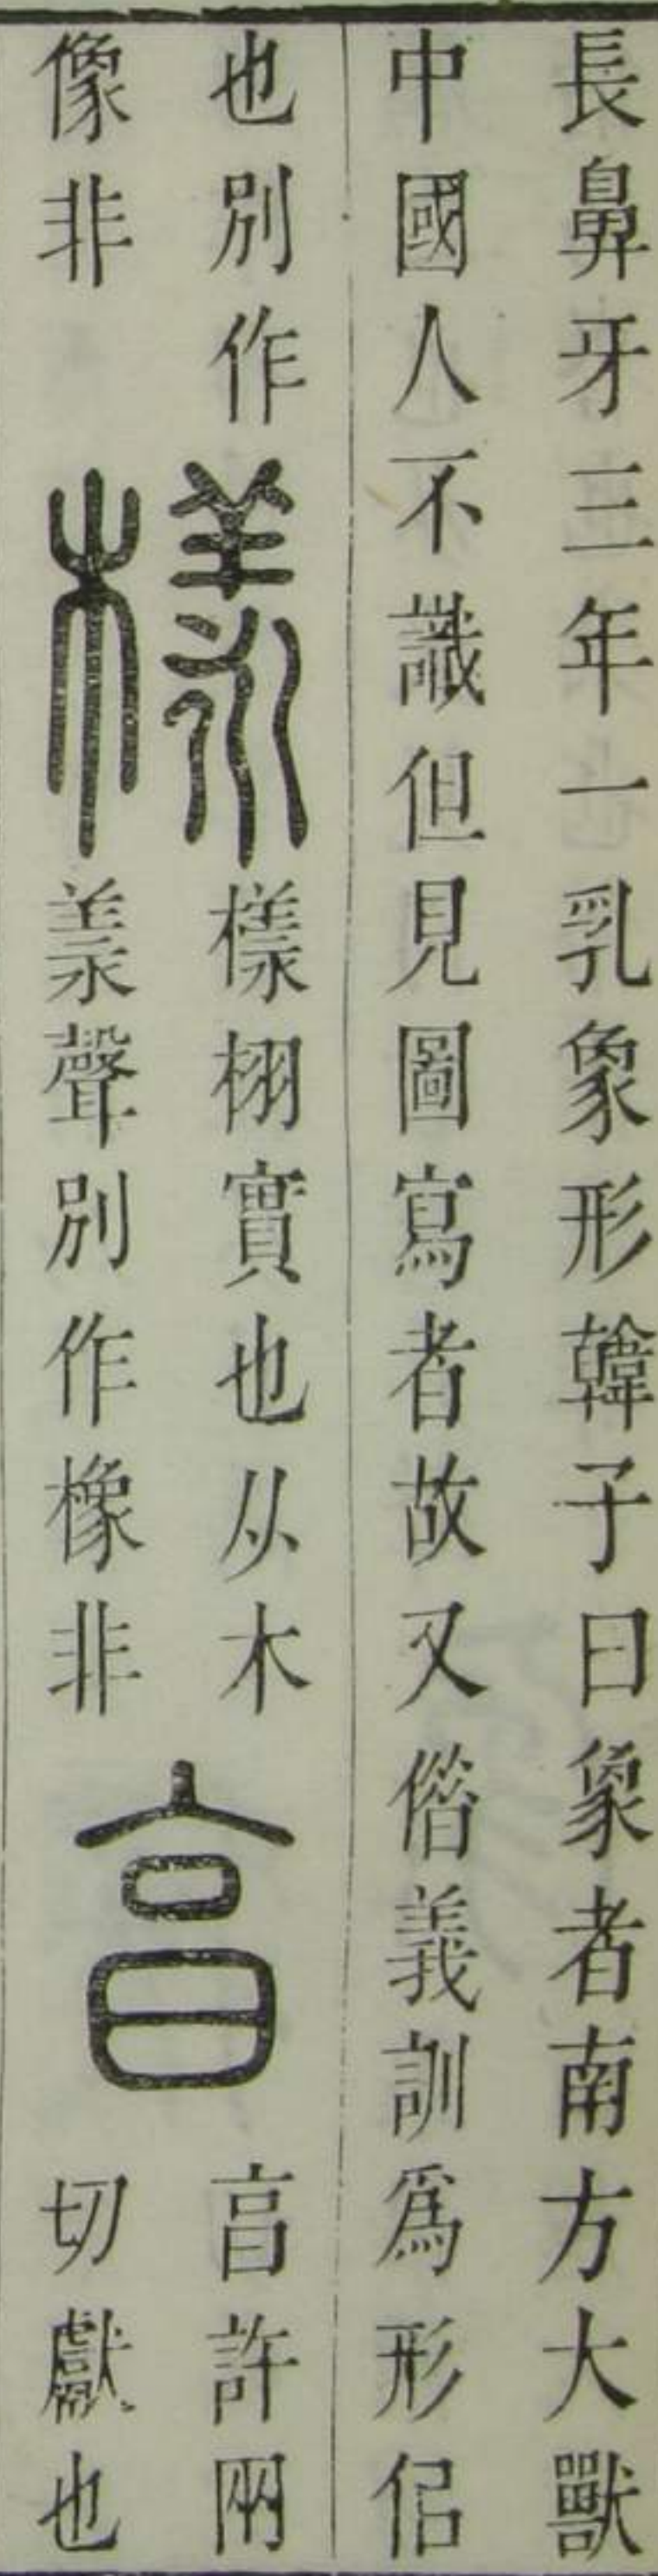 長鼻牙三年一乳象形韓子曰象者南方大獸
中國人不識但見圖寫者故又偕義訓爲形侣
也別作
像非
樣
樣栩實也从木
羕聲別作橡非
亯
亯許兩
切獻也